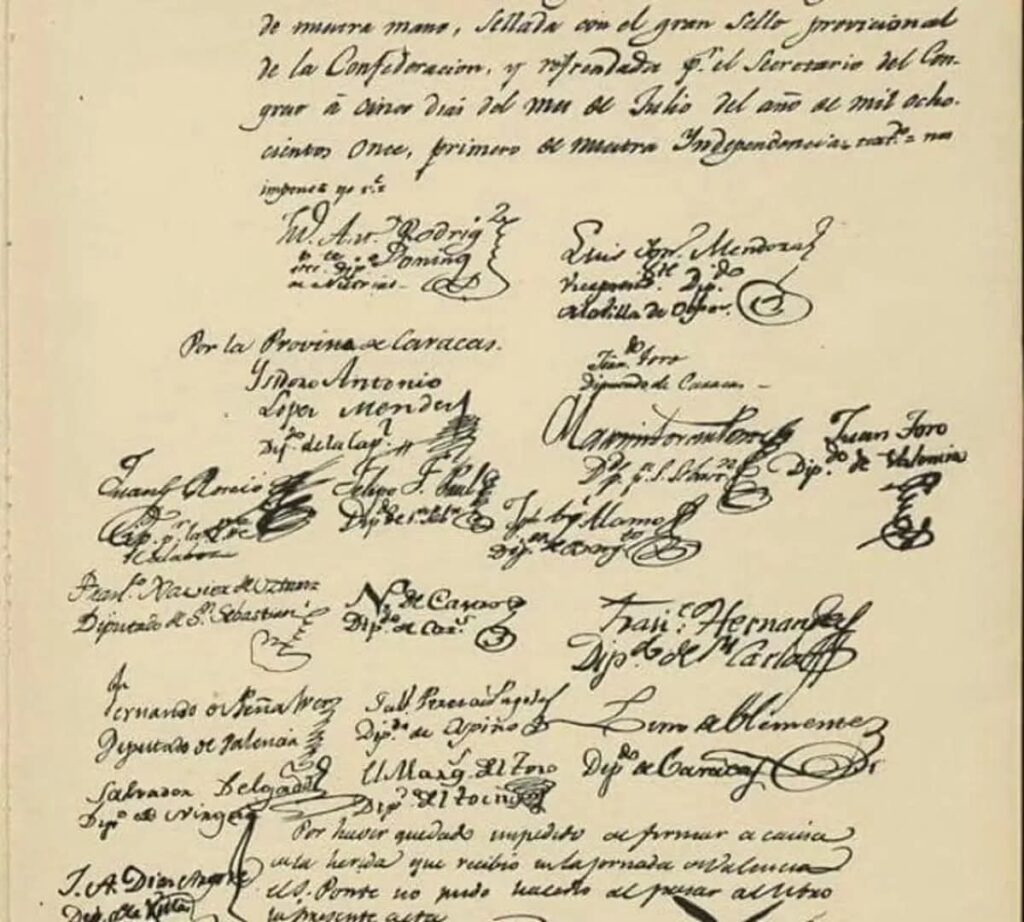 de nuestra mano, sellada con el gran Sello provicional
de la Confederacion, y refrendada p.r el Secretario del Con-
greso à cinco dias del mes de Julio del año de mil ocho-
cientos once, primero de nuestra Independencia
Rodrig.z
Doming
Luis Ign.o Mendoza
Vicepresid.te Dip.do
de la Villa de Obispos.
Por la Provina de Caracas.
Ysidoro Antonio
Lopez Mendez
Dip.do de la Cap.l
Toro
Diputado de Caracas
Juan Toro
Dip.do de Valencia
Juan G. Roscio
Dip. p.r la
Calabozo
Felipe F. Paul
Dip.do de
Alamo
Dip.do de
Fran.co Xavier de Uztariz
Diputado de S.n Sebastian
N. de Castro
Dip.do de Car.s
Fran.co Hernandez
Dip.do de S.n Carlos
Fernando de Peñalver
Diputado de Valencia
Dip.do de Ospino
Lino de Clemente
Dip.do de Caracas
Salvador Delgado
Dip.do de Nirgua
El Marq.s del Toro
Dip.do del Tocuyo
Por haver quedado impedido de firmar a causa
de la herida que recibio en la jornada de Valencia
el S. Ponte no pudo hacerlo al pasar al libro
la presente acta
J. A. Diaz Argote
Dip. de la Villa